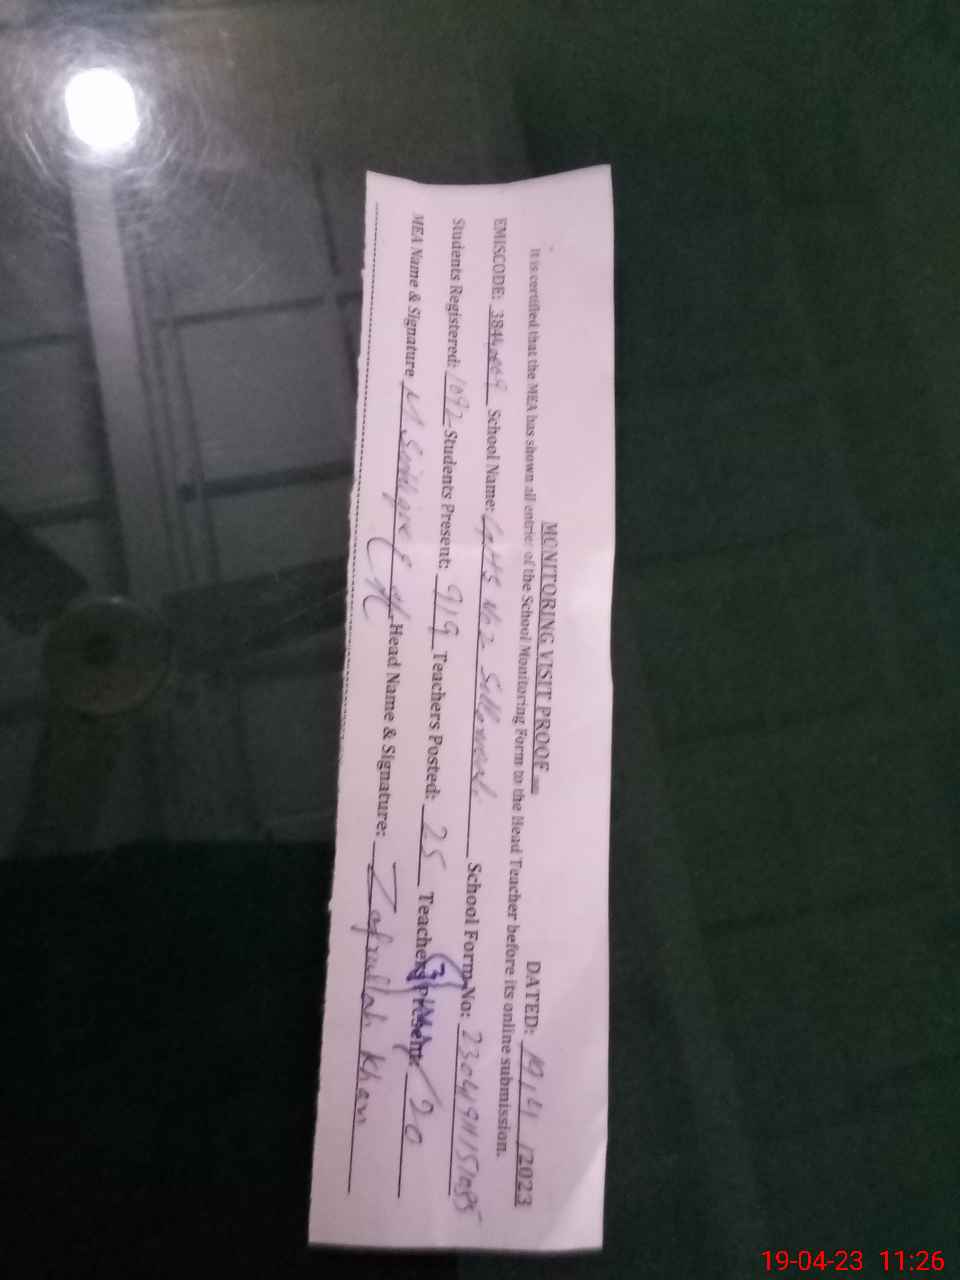 MONITORING VISIT PROOF DATED: 19/4/2023
It is certified that the MEA has shown all entries of the School Monitoring Form to the Head Teacher before its online submission.
EMISCODE: School Name: No 2 School Form No:
Students Registered: 1092 Students Present: 919 Teachers Posted: 25 Teachers Present: 20
MEA Name & Signature M Head Name & Signature: Zafrullah Khan
19-04-23 11:26